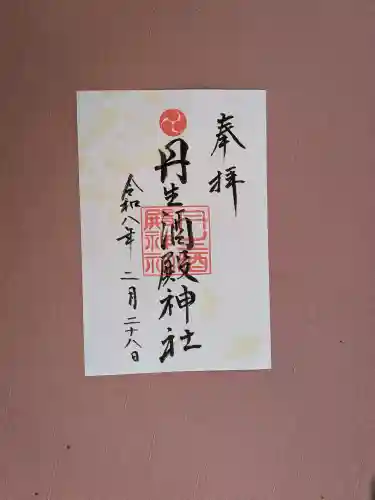 奉拝
丹生酒殿神社
令和八年 二月二十八日